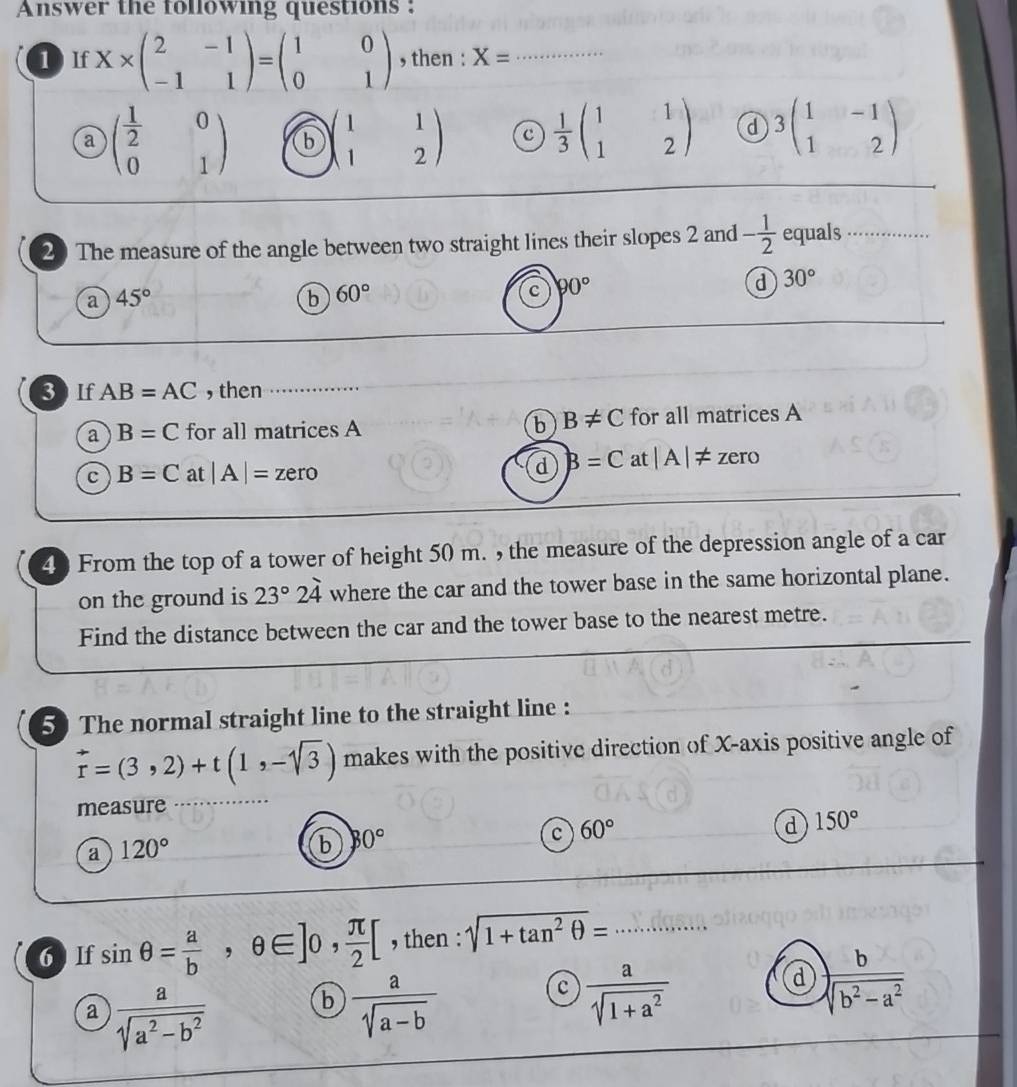 Answer the following questions :
1 If X × ( 2 -1 ; -1 1 ) = ( 1 0 ; 0 1 ) , then : X = ..............
a ( 1/2 0 ; 0 1 ) b ( 1 1 ; 1 2 ) c 1/3 ( 1 1 ; 1 2 ) d 3 ( 1 -1 ; 1 2 )
2 The measure of the angle between two straight lines their slopes 2 and -1/2 equals ..............
a 45° b 60° c 90° d 30°
3 If AB = AC , then ..............
a B = C for all matrices A b B ≠ C for all matrices A
c B = C at |A| = zero d B = C at |A| ≠ zero
4 From the top of a tower of height 50 m. , the measure of the depression angle of a car
on the ground is 23° 24̀ where the car and the tower base in the same horizontal plane.
Find the distance between the car and the tower base to the nearest metre.
5 The normal straight line to the straight line :
r⃗ = (3 , 2) + t (1 , -√3) makes with the positive direction of X-axis positive angle of
measure ..............
a 120° b 30° c 60° d 150°
6 If sin θ = a/b , θ ∈ ]0 , π/2[ , then : √(1 + tan² θ) = ..............
a a/√(a² - b²) b a/√(a - b) c a/√(1 + a²) d b/√(b² - a²)